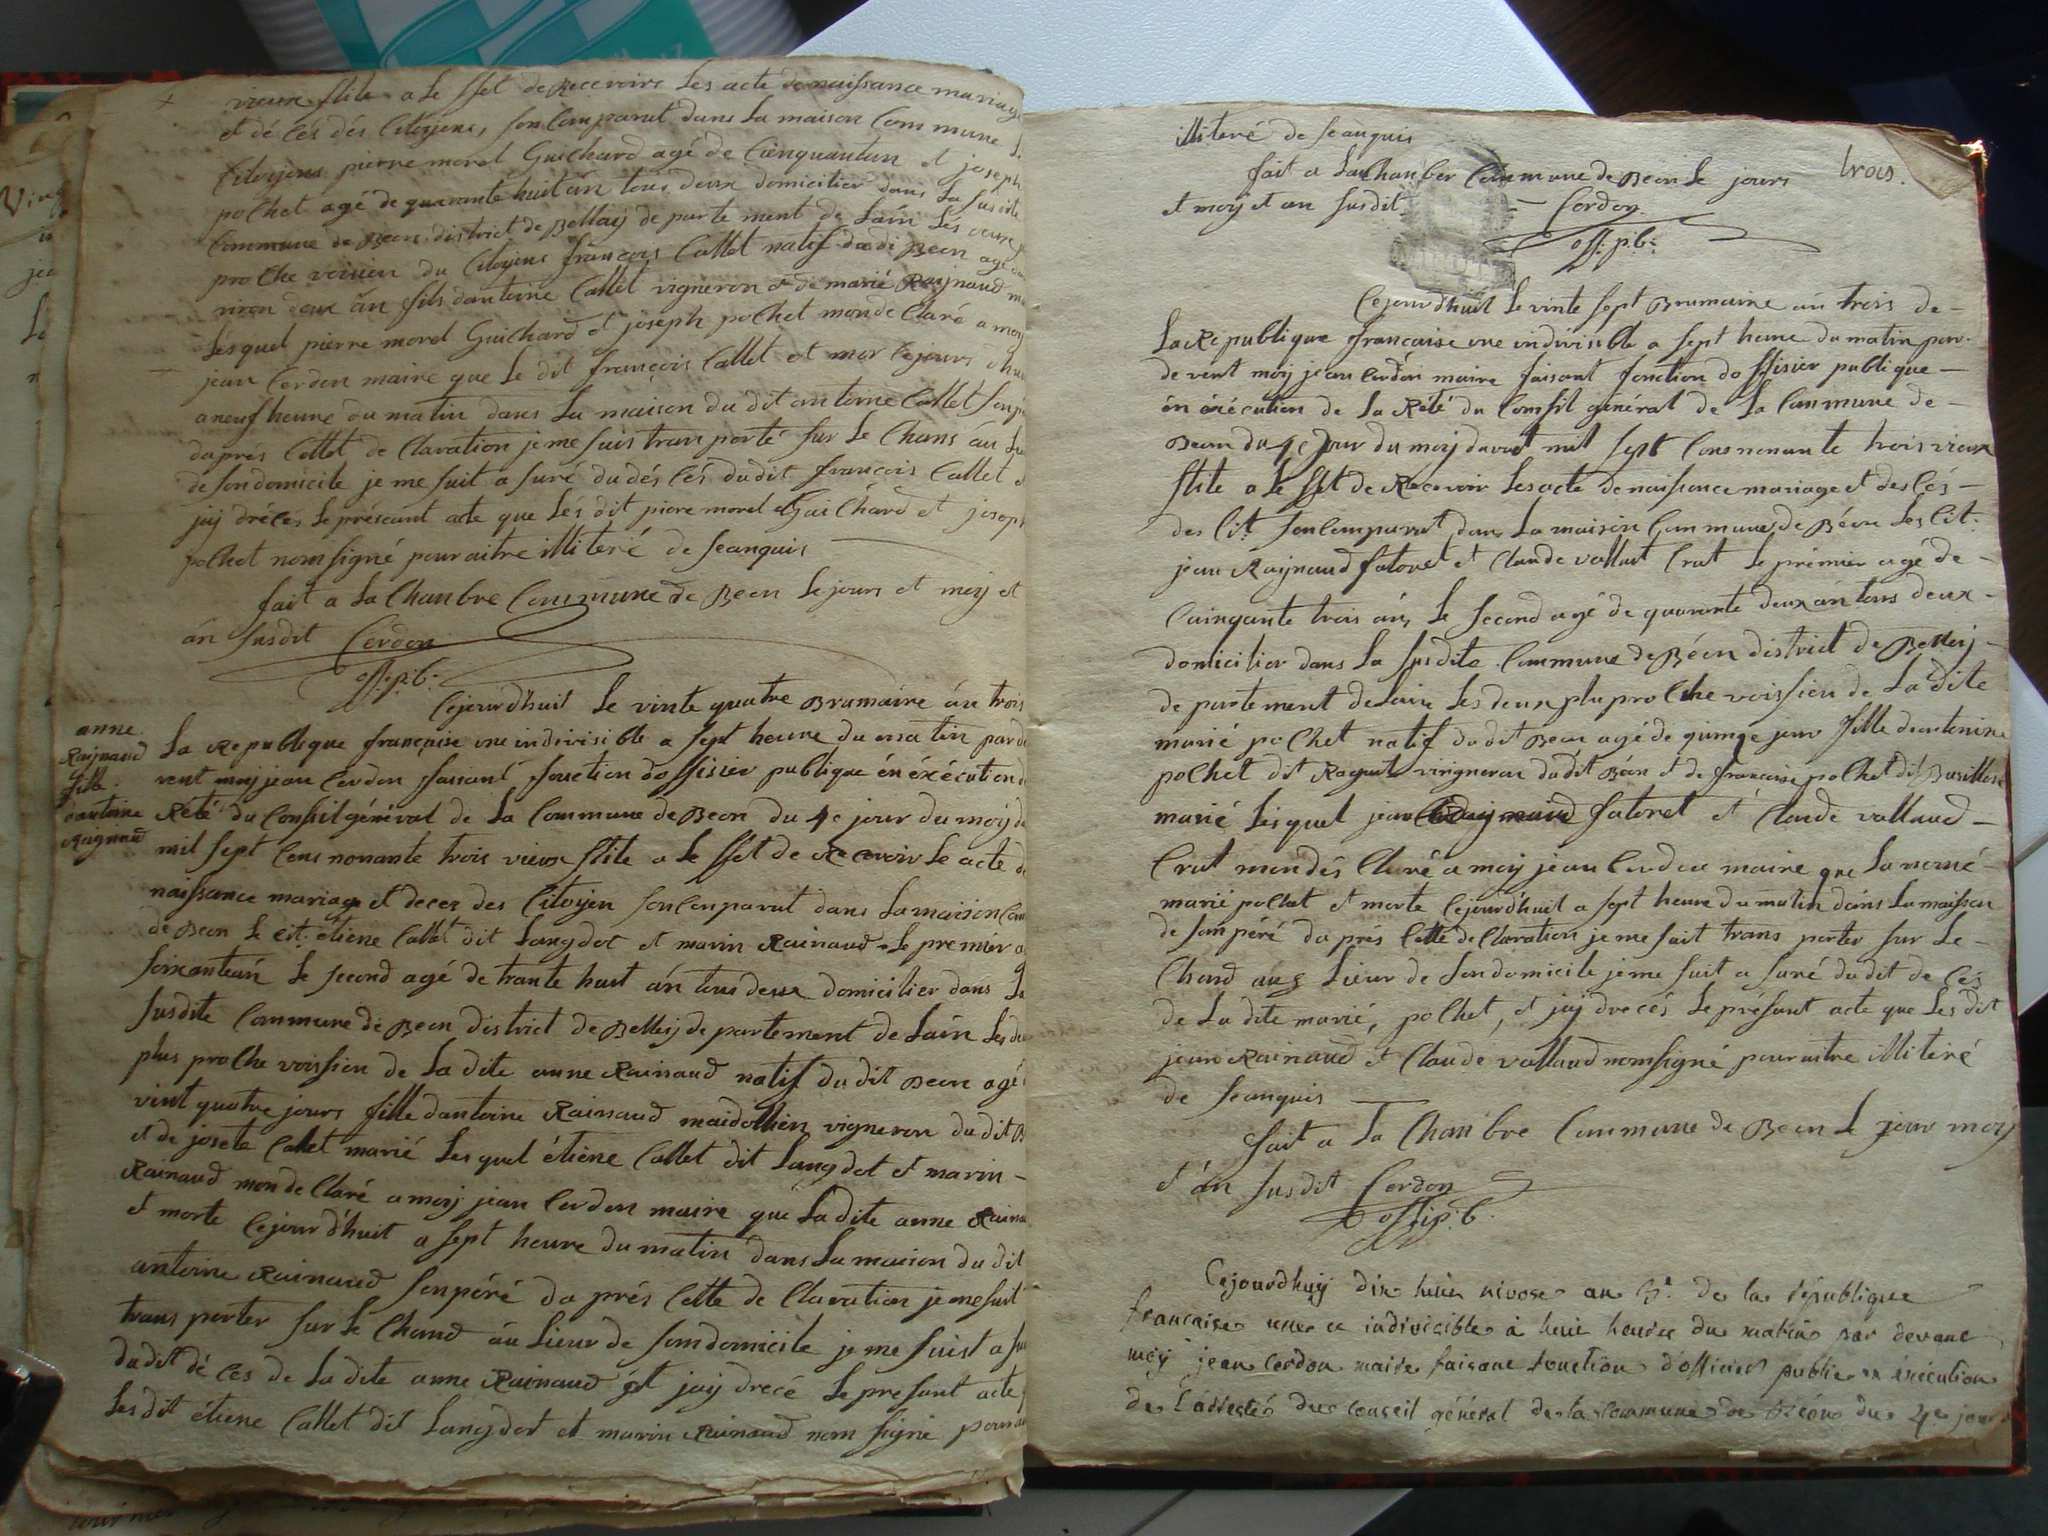 vieux stile a le ffet de Recevoire les acte de naissance mariage
et dé cés des Citoyens, son Comparut dans la maison Commune
Citoyens pierre morel Guichard agé de Cienquantun et joseph
polhet agé de quarante huit án tous deux domicilier dans la susdite
Commune de Beon district de Bellaij de parte ment de Lain Lés
prolhe voissien du Citoyens françois Callet natif du di Beon agé
viron deux án fils dantoine Callet vigneron et de marié Raijnaud
Lésquel pierre morel Guichard et joseph polhet mon de Claré a moij
jean Cerdon maire que le dit françois Callet et mor Cejours dhui
a neuf heure du matin dans la maison du dit antoine Callet son
daprés Cettet de Claration je me suis tran porté sur le Chans áu
de son domicile je me suit a suré du dés cés dudit françois Callet
jaij drécés le présant acte que Lés dit piere morel Guichard et joseph
polhet nom signé pour aitre illiterié de Seanquis
fait a la Chanbre Commune de Beon le jours et moij et
án susdit Cerdon
off: p:b:
Cejourdhuit le vinte quatre Brumaire án trois
anne
Raijnaud
fille
dantoine
Raignaud
La Republique française une indivisible a sept heure du matin par de
vent moij jean Cerdon faisant fonction doffisier publique én éxécution
Rété du Consil général de la Commune de Beon du 4e jour du moij de
mil sept Cens nonante trois vieux stile a le ffet de Recevoir le acte de
naissance mariage et deces des Citoyen son Conparut dans la maison Com
de Beon le cit: étiene Callet dit Langdot et marin Rainaud le premier
soixanteún le second agé de trante huit án tous deux domicilier dans
susdite Commune de Beon district de Belleij de partement de Lain Les
plus prolhe voission de la dite anne Rainaud natif du dit Beon agé
vint quatre jours fille dantoine Rainaud vigneron du dit
et de josete Callet marié Les quel étiene Callet dit Langdot et marin -
Rainaud mon de Claré a moij jean Cerdon maire que la dite anne
et morte Cejourd'huit a sept heure du matin dans la maison du dit
antoine Rainaud son péré da prés Cette de Claration je me suit
trans porter sur le Chand áu Lieur de son domicile je me suist a
du dit dé ces de la dite anne Rainaud et jaij drecé le presant acte
Les dit étiene Callet dit Langdot et marin Rainaud nom signé pour
illiteré de Seanquis
trois.
fait a La Chanber Commune de Beon le jours
et moij et an susdit - Cerdon
off: p:b:
Cejourdhuit le vinte sept Brumaire án trois de -
La Republique francaise une indivisible a sept heure du matin par-
de vent moij jean Cerdon maire faisant fonction do ffisier publique -
én éxécution de la Rété du Consil général de la Commune de -
Beon du 4e jour du moij mil sept Cens nonante trois vieux
stile a le ffet de Recevoir les acte de naissance mariage et des cés -
des Cit. son Comparut dans la maison Commune de Béon les Cit:
jean Raijnaud fatoret et Claude vallaut Crut le prémier agé de -
Cainqante trois án, le second agé de quarante deux án tous deux -
domicilier dans la susdite Commune de Béon district de Belleij -
de partement de Lain Les deux plu prolhe voissien de La dite
marié polhet natif du dit Beon agé de quinze jour fille dantoine
polhet dit vingneron du dit Béon et de francoise polhet dit
marié Lésquel jean Raijnaud fatoret et Claude vallaud -
Crut mon dés Claré a moij jean Cerdon maire que La nomé
marié polhet et morte Cejourd'huit a sept heure du matin dans La maisson
de son péré da prés Cette de Claration je me suit trans porter sur Le -
Chand aux Lieur de son domicile je me suit a suré du dit de cés
de La dite marié, polhet, et jaij drecés Le présant acte que Les dit
jean Rainaud et Claude vallaud nom signé pour aitre illiteré
de Seanquis
fait a La Chanbre Commune de Beon Le jour moij
et án susdit Cerdon
off: p:b:
Cejourdhuij dix huit nivose an 3e. de la république
francaise une et indivisible à huit heures du matin par devant
moij jean Cerdon maire faisant fonction d'officier public en éxécution
de l'arresté du conseil général de la commune de Béon du 4e jour